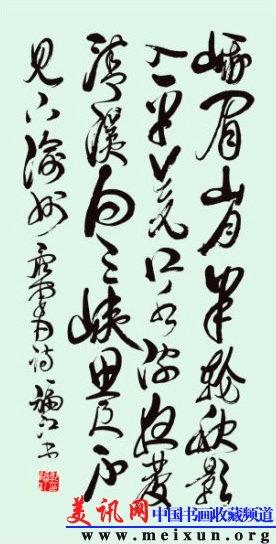 峨眉山月半轮秋影
入平羌江水流夜发
清溪向三峡思君不
见下渝州 李白诗
美讯网 中国书画收藏频道
www.meixun.org